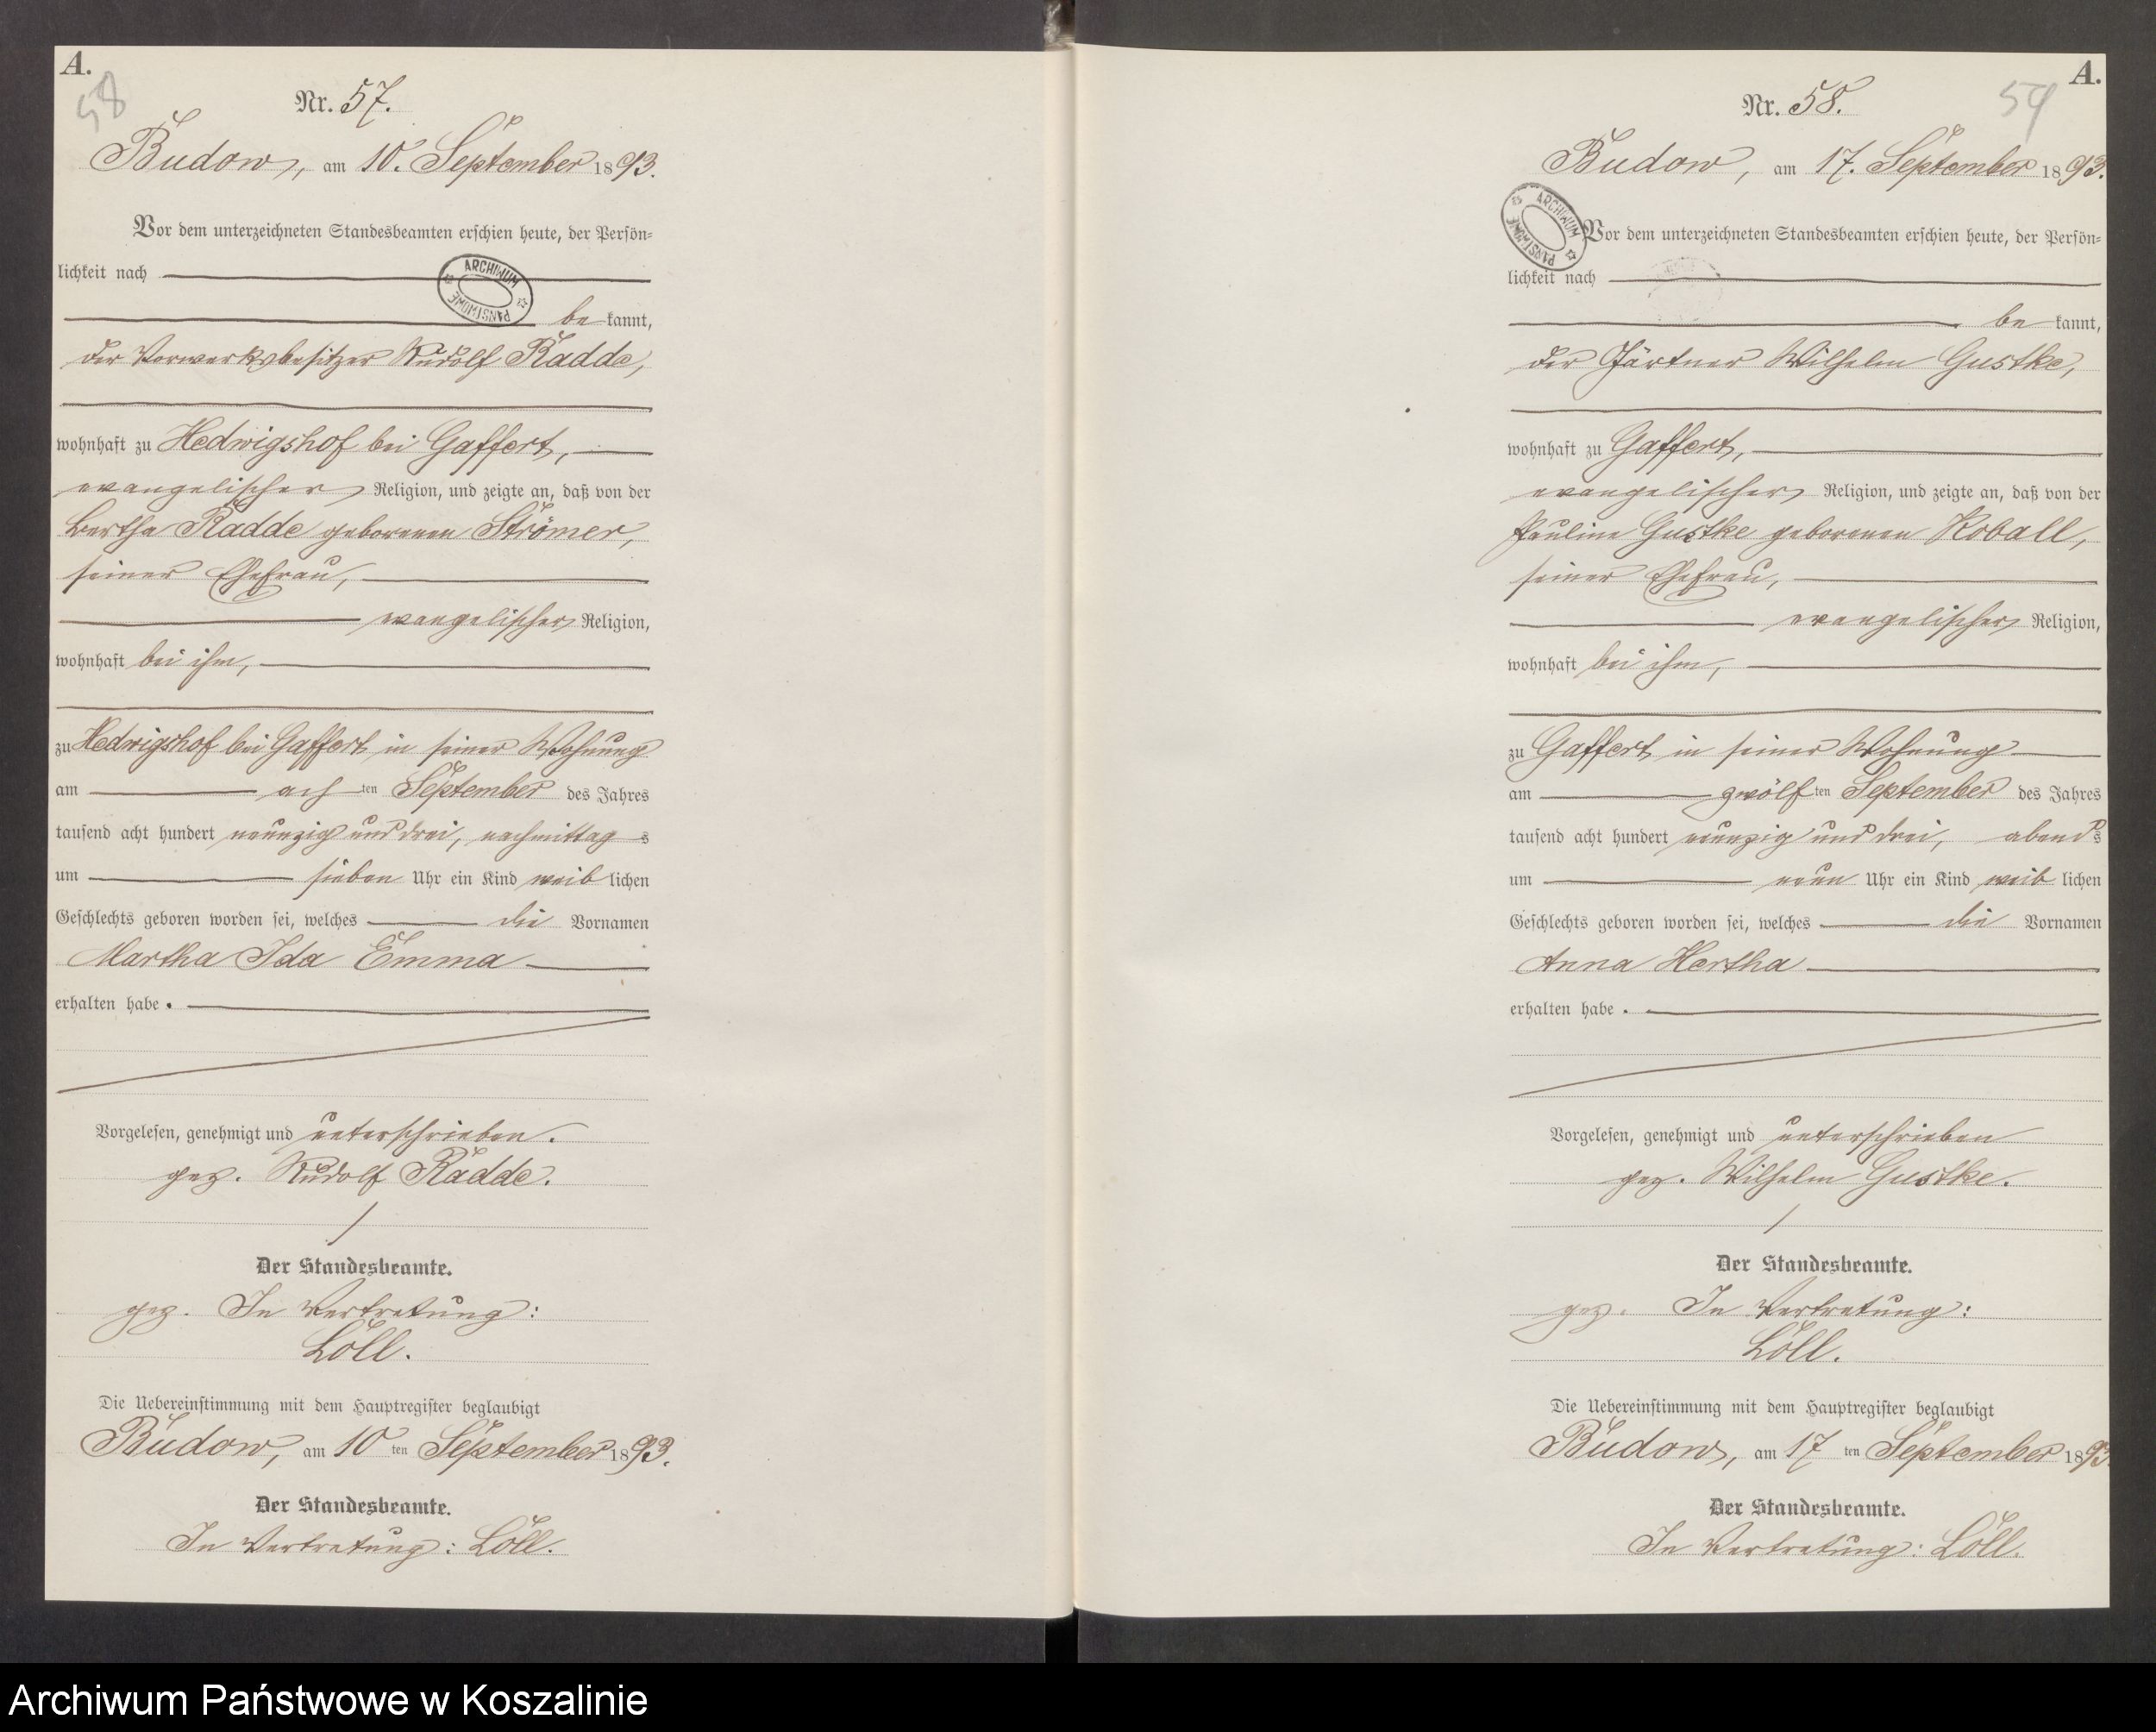 A.
58
Nr. 57.
Budow, am 10. September 1893.
Vor dem unterzeichneten Standesbeamten erschien heute, der Persön=
lichkeit nach
ARCHIWUM PAŃSTWOWE
be kannt,
der Vorwerksbesitzer Rudolf Radde,
wohnhaft zu Hedwigshof bei Gaffert,
evangelischer Religion, und zeigte an, daß von der
Bertha Radde geborenen Strömer,
seiner Ehefrau,
evangelischer Religion,
wohnhaft bei ihm,
zu Hedwigshof bei Gaffert in seiner Wohnung
am ach ten September des Jahres
tausend acht hundert neunzig und drei, nachmittag s
um sieben Uhr ein Kind weib lichen
Geschlechts geboren worden sei, welches die Vornamen
Martha Ida Emma
erhalten habe.
Vorgelesen, genehmigt und unterschrieben.
gez. Rudolf Radde.
Der Standesbeamte.
gez. In Vertretung:
Löll.
Die Uebereinstimmung mit dem Hauptregister beglaubigt
Budow, am 10 ten September 1893.
Der Standesbeamte.
In Vertretung: Löll.
A.
59
Nr. 58.
Budow, am 17. September 1893.
ARCHIWUM PAŃSTWOWE
Vor dem unterzeichneten Standesbeamten erschien heute, der Persön=
lichkeit nach
be kannt,
der Gärtner Wilhelm Gustke,
wohnhaft zu Gaffert,
evangelischer Religion, und zeigte an, daß von der
Pauline Gustke geborenen Koball,
seiner Ehefrau,
evangelischer Religion,
wohnhaft bei ihm,
zu Gaffert in seiner Wohnung
am zwölf ten September des Jahres
tausend acht hundert neunzig und drei, abend s
um neun Uhr ein Kind weib lichen
Geschlechts geboren worden sei, welches die Vornamen
Anna Hertha
erhalten habe.
Vorgelesen, genehmigt und unterschrieben
gez. Wilhelm Gustke.
Der Standesbeamte.
gez. In Vertretung:
Löll.
Die Uebereinstimmung mit dem Hauptregister beglaubigt
Budow, am 17 ten September 1893.
Der Standesbeamte.
In Vertretung: Löll.
Archiwum Państwowe w Koszalinie